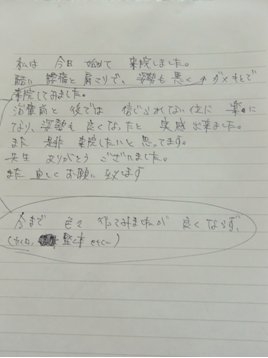 私は 今日 始めて 来院しました。
腰痛と肩こりで、姿勢も悪く ダメもとで
来院してみました。
治療前と 後では 信じられない位に 楽に
なり、姿勢も 良くなったと 実感出来ました。
また 是非 来院したいと 思ってます。
先生 ありがとう ございました。
また 宜しく お願い 致します
今まで 色々 行ってみましたが 良くならず、
整体